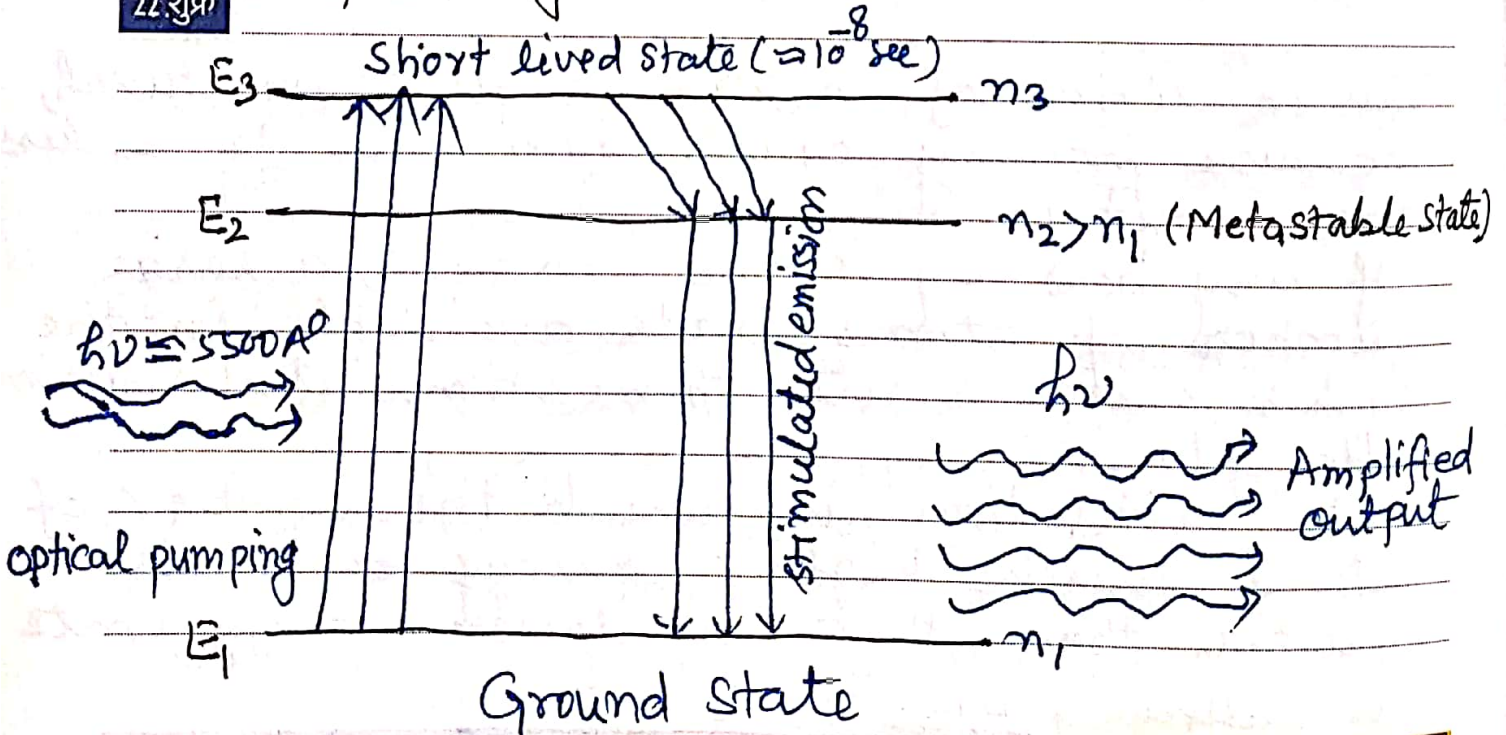 22.शुक्र
Short lived state (≈10⁻⁸ see)
E₃
n₃
E₂
n₂>n₁ (Metastable state)
hν≃5500A⁰
stimulated emission
hν
Amplified
output
optical pumping
E₁
n₁
Ground state